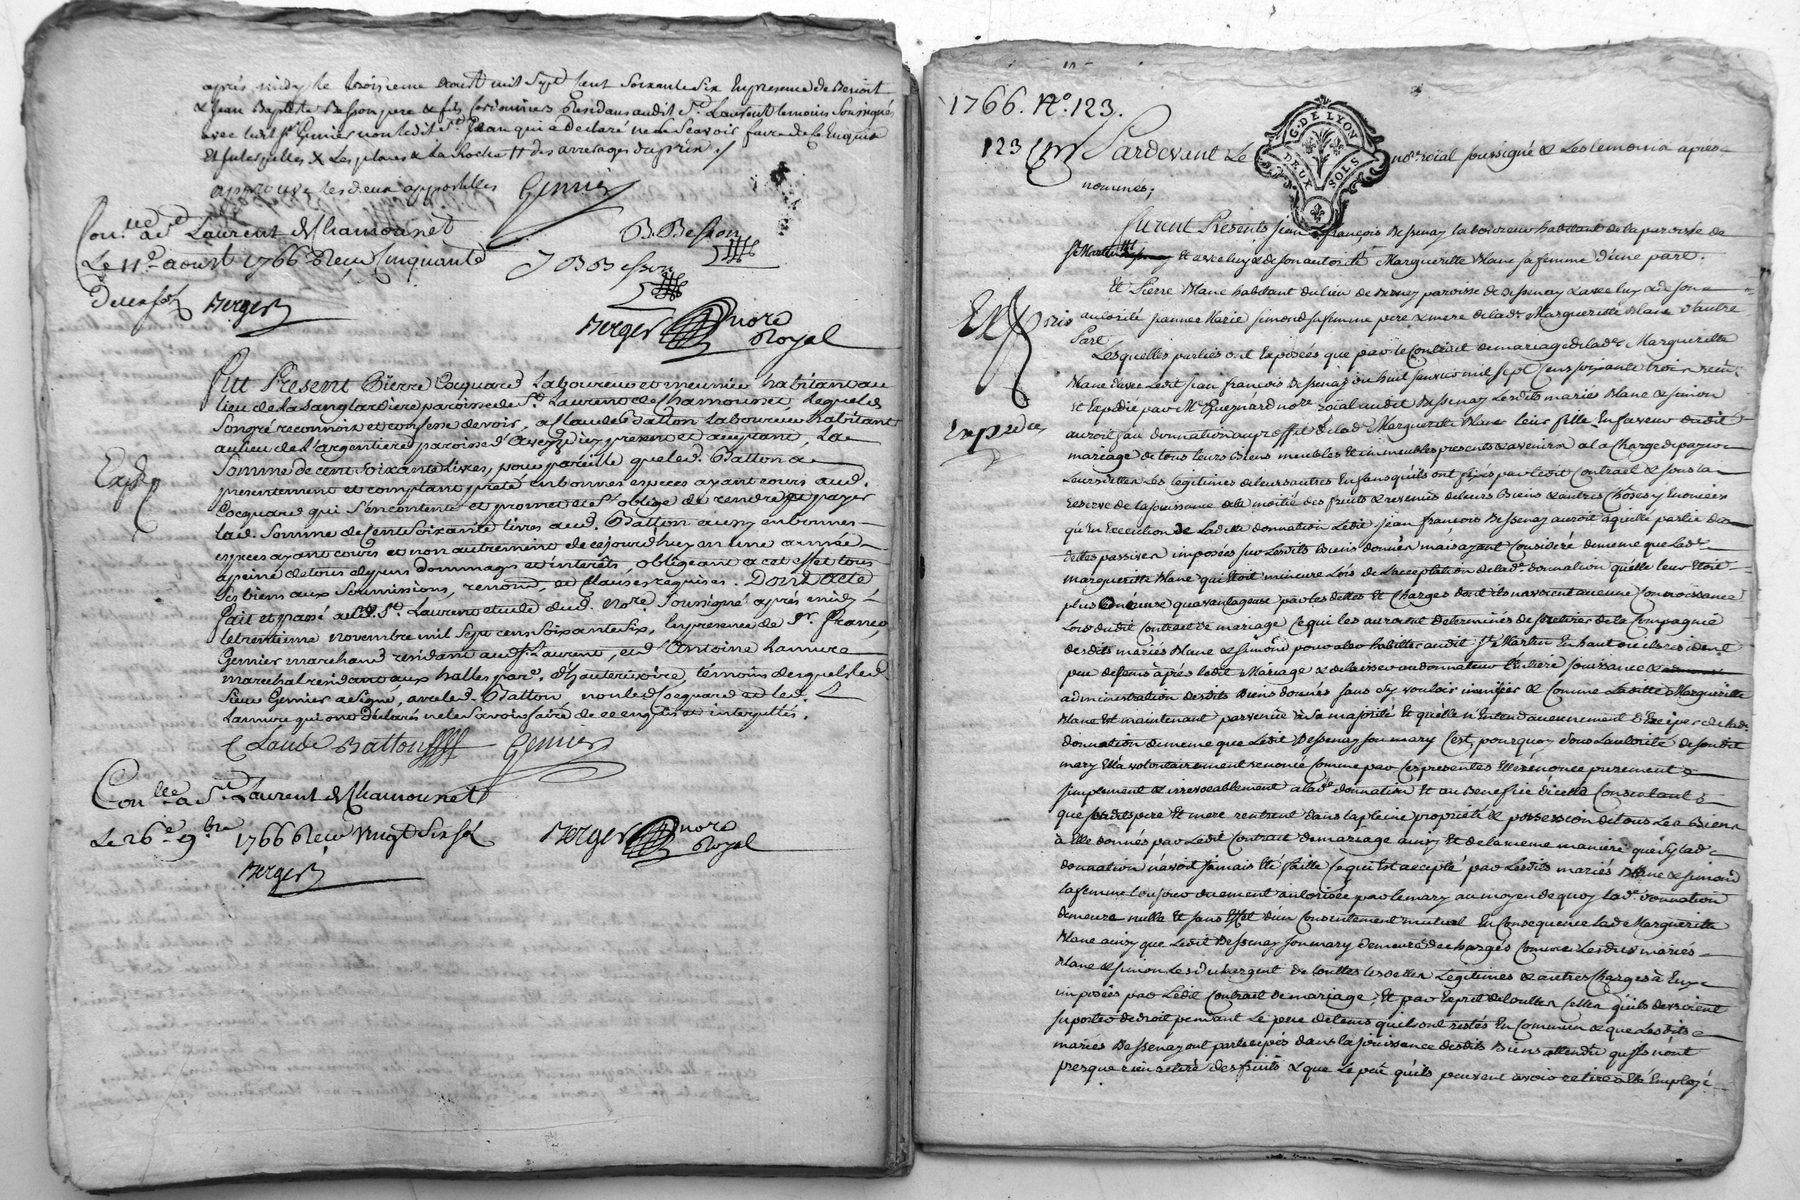 après midy le troisieme aoust mil sept cent soixante six en presence de Benoit
& Jean Baptiste Besson pere & fils cordonniers residans audit St Laurent temoins soussignés
avec ledit Sr Gernier non ledit Sr Jean qui a declaré ne le scavoir faire de ce enquis
et les places & La Roche des arrerages du prix
approuve les deux apostilles Gernier
Con.llé a St Laurent de Chamousset
Le 11e aoust 1766 Reçu Cinquante
Deux sols Berger
B. Besson
J B Besson
Berger nore
Royal
Fut Present Pierre Cocquard Laboureur et meunier habitant au
lieu de La Sanglardiere paroisse de St Laurent de Chamousset, Lequel de
son gré reconnoit et confesse devoir, a Claude Batton Laboureur habitant
au lieu de L'argentiere paroisse d'Aveyzieu present et acceptant, La
Somme de cent soixante Livres, pour pareille que led. Batton a
presentement et comptant preté en bonnes especes ayant cours aud.
Cocquard qui s'en contente et promet et s'oblige de rendre et payer
lad. Somme de Cent Soixante livres aud. Batton aussy en bonnes
especes ayant cours et non autrement de ce jourd'huy en une année
a peine de tous depens dommages et interêts, obligeant a cet effet tous
ses biens aux Soumissions, renon.on, et Clauses requises. Dont acte
Fait et passé aud. St Laurent etude dud. Nore Soussigné après midy
le trentieme novembre mil sept cens soixante six, en presence de Sr. Franco,
Gernier marchand residant aud St Laurent, et d'Antoine Lamure
marechal residant aux halles par.e d'hauterivoire, témoins desquels led.
Sieur Gernier a Signé, avec led. Batton, non led Cocquard et led.
Lamure qui ont déclarés ne le Savoir faire de ce enquis et interpellés.
Exp.
Claude Batton Gernier
Con.llée a St Laurent de Chamousset
Le 26e 9.bre 1766 Reçu Vingt Six sol
Berger
Berger nore
Royal
1766. No. 123.
123 Pardevant Le nore roïal soussigné & Les temoins après
nommés;
G. DE LYON
DEUX SOLS
furent Présents jean François Dessenay laboureur habitant de la paroisse de
St Martin Et avec luy & de son autorité Marguerite Blanc sa femme d'une part.
Et Pierre Blanc habitant du lieu de paroisse de Bessenay & avec luy & de son
autorité jeanne Marie simond sa femme pere & mere de lade Margueritte Blanc d'autre
Part
Exp
Expediée
Lesquelles parties ont Exposées que par le Contrat de mariage de lade Margueritte
Blanc avec Ledit jean françois Dessenay du huit janvier mil sept Cens soixante trois reçu
Et Expedié par Me Guignard nore roïal audit Bessenay Lesdits mariés Blanc & simon
auroit fau donnation au proffit de lade Margueritte Blanc leur fille En faveur dudit
mariage de tous leurs Biens meubles & immeubles presents & avenirs a la Charge de payer
Leurs dettes Les legitimes de leurs autres Enfans qu'ils ont fixés par ledit Contrat & sous la
reserve de la jouissance de la moitié des fruits & revenus de leurs Biens & autres Choses y Enoncées
qu'En Execution de Ladite donnation Ledit jean françois Dessenay auroit acquitté partie des
dettes passives imposées sur Lesdits Biens donnés mais ayant Consideré de meme que Lade
margueritte Blanc qui étoit mineure Lors de L'acceptation de lade. donnation quelle leur étoit
plus onéreuse quavantageuse par les dettes & Charges dont ils n'avoient aucune Connoissance
Lors dudit Contrat de mariage Ce qui les auroient determinés de se retirer de la Compagnie
desdits mariés Blanc & simond pour aller habitter audit St Martin En haut où ils resident
peu de tems après ledit Mariage & de laisser au donnateur l'entiere jouissance &
administration desdits Biens donnés sans s'y vouloir immiscer & Comme Laditte Margueritte
Blanc Est maintenant parvenüe à Sa majorité Et quelle n'Entend aucunement d'Exciper de lade
donnation de meme que Ledit Dessenay son mary C'est pourquoy sous L'autorité de son dit
mary Ella volontairement renoncé Comme par Ces presentes Elle renonce purement &
simplement & irrevocablement à lade donnation Et au benefice d'icelle Consentant
que sesdits pere Et mere rentrent dans la pleine proprieté & possession de tous Les Biens
à Elle donnés par Ledit Contrat de mariage ainsy Et de la meme maniere que sy lade
donnation n'avoit jamais Eté faitte Ce qui Est accepté par Lesdits mariés Blanc & simond
la femme toujour duement autorisée par le mary au moyen de quoy lade. donnation
demeure nulle Et sans Effet d'un Consentement mutuel En Consequence Lade Margueritte
Blanc ainsy que Ledit Dessenay son mary demeure dechargés Comme Lesdits mariés
Blanc & simon Les dechargent de touttes les dettes Legitimes & autres Charges à Eux
imposées par Ledit Contrat de mariage, Et par Exprès de touttes Celles qu'ils devroient
suporter de droit pendant Le peu de tems quils ont restés En Commun & que Lesdits
mariés Dessenay ont participés dans la jouissance desdits Biens attendu qu'ils n'ont
presque rien retiré des fruits & que Le peu qu'ils peuvent avoir retiré a Eté Employé